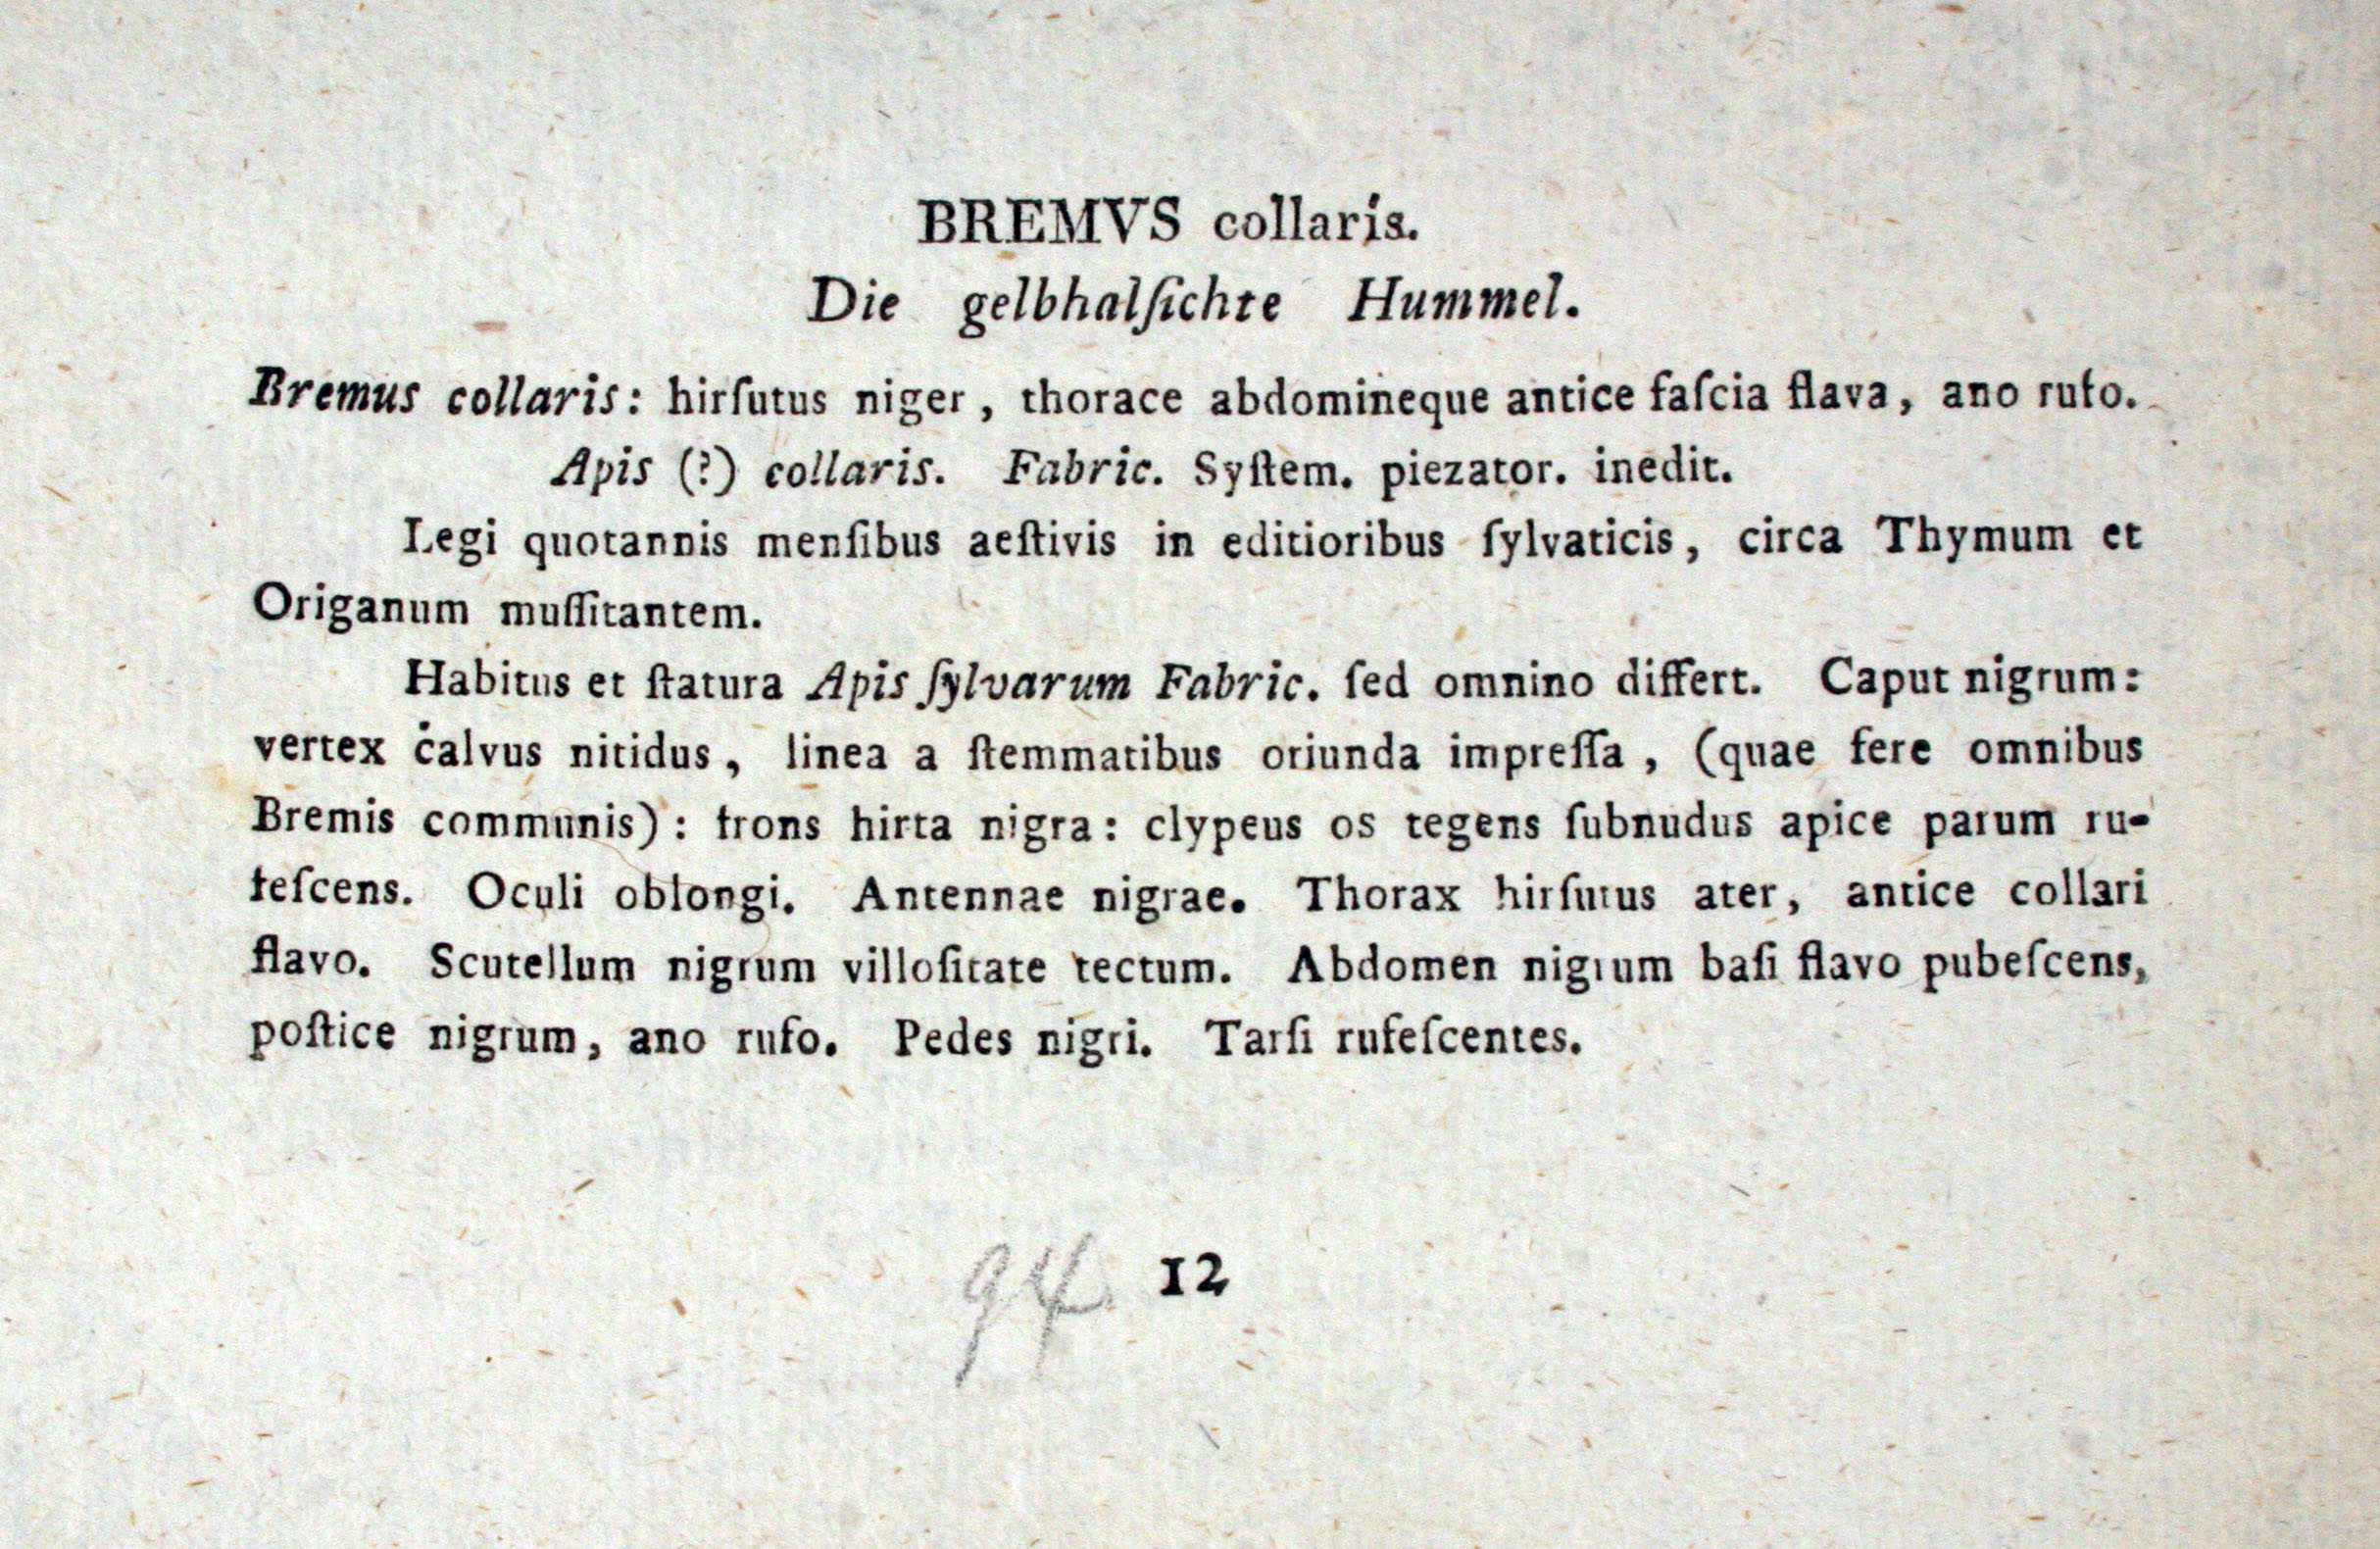 BREMVS collaris.
Die gelbhalſichte Hummel.
Bremus collaris: hirſutus niger, thorace abdomineque antice faſcia flava, ano rufo.
Apis (?) collaris. Fabric. Syſtem. piezator. inedit.
Legi quotannis menſibus aeſtivis in editioribus ſylvaticis, circa Thymum et
Origanum muſſitantem.
Habitus et ſtatura Apis ſylvarum Fabric. ſed omnino differt. Caput nigrum:
vertex calvus nitidus, linea a ſtemmatibus oriunda impreſſa, (quae fere omnibus
Bremis communis): frons hirta nigra: clypeus os tegens ſubnudus apice parum ru-
feſcens. Oculi oblongi. Antennae nigrae. Thorax hirſutus ater, antice collari
flavo. Scutellum nigrum villoſitate tectum. Abdomen nigrum baſi flavo pubeſcens,
poſtice nigrum, ano rufo. Pedes nigri. Tarſi rufeſcentes.
94. 12